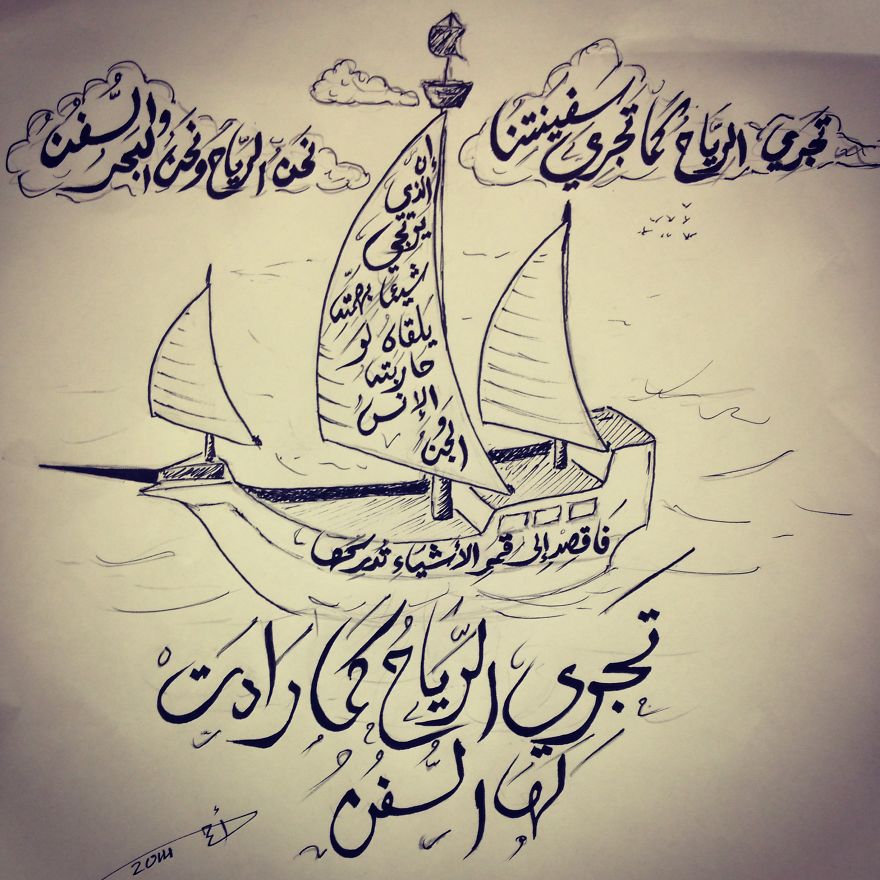 تجري الرياح كما تجري سفينتنا
نحن الرياح ونحن البحر
والسفن
إن
الذي
يرتجي
شيئا بهمته
يلقاه لو
حاربته
الإنس
والجن
فاقصد إلى قمم الأشياء تدركها
تجري الرياح كما رادت
لها السفن
2014